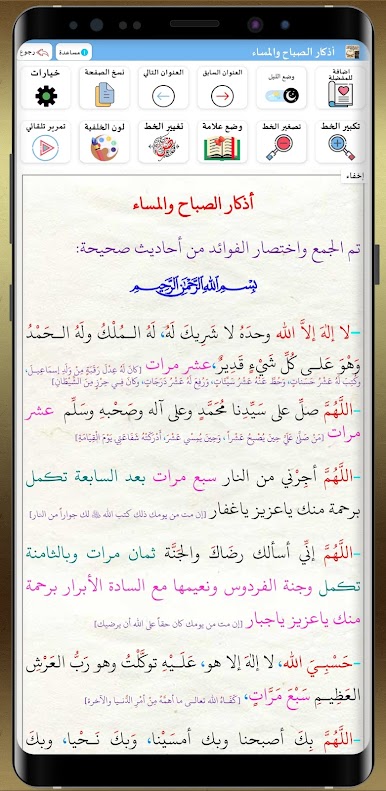 أذكار الصباح والمساء
مساعدة
رجوع
اضافة للمفضلة
وضع الليل
العنوان السابق
العنوان التالي
نسخ الصفحة
خيارات
تكبير الخط
تصغير الخط
وضع علامة
تغيير الخط
لون الخلفية
تمرير تلقائي
إخفاء
أذكار الصباح والمساء
تم الجمع واختصار الفوائد من أحاديث صحيحة:
بِسْمِ اللهِ الرَّحْمٰنِ الرَّحِيْمِ
-لا إلهَ إلاَّ الله وحدَهُ لا شَرِيكَ لَهُ، لَهُ المُلْكُ ولَهُ الحَمْدُ
وَهُوَ عَلى كُلِّ شَيْءٍ قَدِيرٌ،عشر مرات [كَانَ لَهُ عِدْلَ رَقَبَةٍ مِنْ وَلَدِ إِسمَاعِيلَ،
وكُتِبَ لَهُ عَشْرُ حَسَنَاتٍ، وَحُطَّ عَنْهُ عَشْرُ سَيِّئَاتٍ، وَرُفِعَ لَهُ عَشْرُ دَرَجَاتٍ، وكان في حِرْزٍ مِنَ الشَّيْطَانِ]
-اللَّهُمَّ صلِّ على سَيِّدِنا مُحَمَّدٍ وعلى آله وصَحْبِهِ وسَلَّم عشر
مرات [مَن صَلَّى عَلَيَّ حِينَ يُصْبِحُ عَشْراً، وَحِينَ يُمْسِي عَشْرَ، أَدْرَكَتْهُ شَفَاعَتِي يَوْمَ القِيَامَةِ]
-اللَّهُمَّ أجِرْني من النار سبع مرات بعد السابعة تكمل
برحمة منك ياعزيز ياغفار [إن مت من يومك ذلك كتب الله ﷻ لك جواراً من النار]
-اللَّهُمَّ إنِّي أسألك رضَاكَ والجَنَّة ثمان مرات وبالثامنة
تكمل وجنة الفردوس ونعيمها مع السادة الأبرار برحمة
منك ياعزيز ياجبار [إن مت من يومك كان حقاً على الله أن يرضيك]
-حَسْبِيَ الله، لا إلهَ إلا هو، عَلَيْهِ توكَّلْتُ وهو رَبُّ العَرْشِ
العَظِيمِ سَبْعَ مَرَّاتٍ، [كَفَاهُ الله تعالى ما أهمَّهُ مِنْ أمْرِ الدُّنيا والآخرة]
-اللَّهُمَّ بِكَ أصبحنا وبك أمسَيْنا، وَبكَ نَحْيا، وبكَ